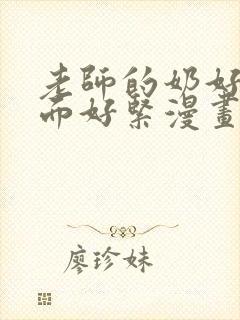 老師的奶好
而好緊漫畫
廖珍妹